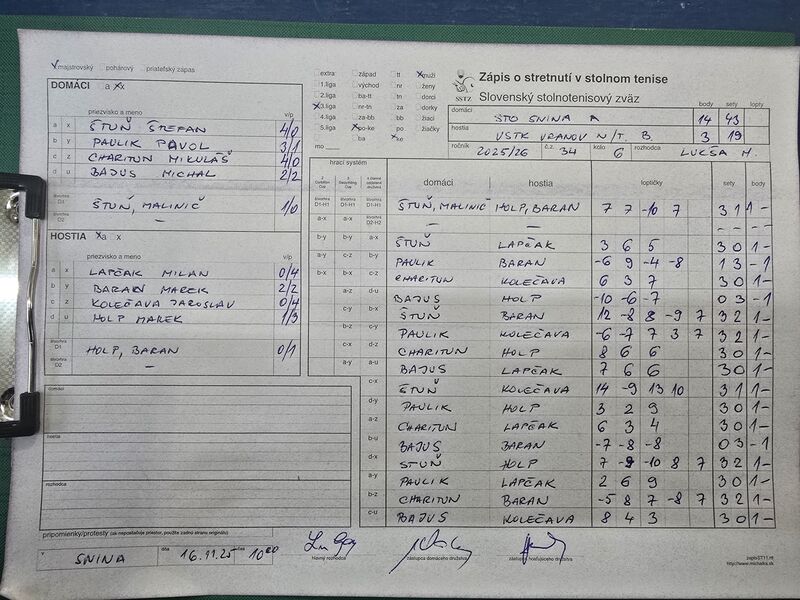 majstrovský pohárový priateľský zápas
DOMÁCI a x
priezvisko a meno v/p
a x ŠTUŇ ŠTEFAN 4/0
b y PAULIK PAVOL 3/1
c z CHARITUN MIKULÁŠ 4/0
d u BAJUS MICHAL 2/2
štvorhra D1 ŠTUŇ, MALINIČ 1/0
štvorhra D2 —
HOSTIA a x
priezvisko a meno v/p
a x LAPČAK MILAN 0/4
b y BARAN MAREK 2/2
c z KOLEČAVA JAROSLAV 0/4
d u HOLP MAREK 1/3
štvorhra D1 HOLP, BARAN 0/1
štvorhra D2 —
domáci
hostia
rozhodca
extra západ tt muži
1.liga východ nr ženy
2.liga ba-tt tn dorci
3.liga nr-tn za dorky
4.liga za-bb bb žiaci
5.liga po-ke po žiačky
mo ba ke
SSTZ
Zápis o stretnutí v stolnom tenise
Slovenský stolnotenisový zväz
body sety lopty
domáci STO SNINA A 14 43
hostia VSTK VRANOV N/T. B 3 19
ročník 2025/26 č.z. 34 kolo 6 rozhodca LUKŠA M.
hrací systém domáci hostia loptičky sety body
štvorhra D1-H1 štvorhra D1-H1 štvorhra D1-H1 ŠTUŇ, MALINIČ HOLP, BARAN 7 7 -10 7 3 1 1 -
a-x a-x štvorhra D2-H2 — — - - - -
b-y b-y a-x ŠTUŇ LAPČAK 3 6 5 3 0 1 -
a-y c-z b-y PAULIK BARAN -6 9 -4 -8 1 3 - 1
b-x b-x c-z CHARITUN KOLEČAVA 6 3 7 3 0 1 -
a-z d-u BAJUS HOLP -10 -6 -7 0 3 - 1
c-y b-x ŠTUŇ BARAN 12 -8 8 -9 7 3 2 1 -
b-z c-y PAULIK KOLEČAVA -6 -7 7 3 7 3 2 1 -
c-x d-z CHARITUN HOLP 8 6 6 3 0 1 -
a-y a-u BAJUS LAPČAK 7 6 6 3 0 1 -
c-x ŠTUŇ KOLEČAVA 14 -9 13 10 3 1 1 -
d-y PAULIK HOLP 3 2 9 3 0 1 -
a-z CHARITUN LAPČAK 6 3 4 3 0 1 -
b-u BAJUS BARAN -7 -8 -8 0 3 - 1
d-x ŠTUŇ HOLP 7 -9 -10 8 7 3 2 1 -
a-y PAULIK LAPČAK 2 6 9 3 0 1 -
b-z CHARITUN BARAN -5 8 7 -8 7 3 2 1 -
c-u BAJUS KOLEČAVA 8 4 3 3 0 1 -
pripomienky/protesty (ak nepostačuje priestor, použite zadnú stranu originálu)
v SNINA dňa 16.11.25 čas 10 00
hlavný rozhodca zástupca domáceho družstva zástupca hosťujúceho družstva
zapisST11.rtf
http://www.michalka.sk